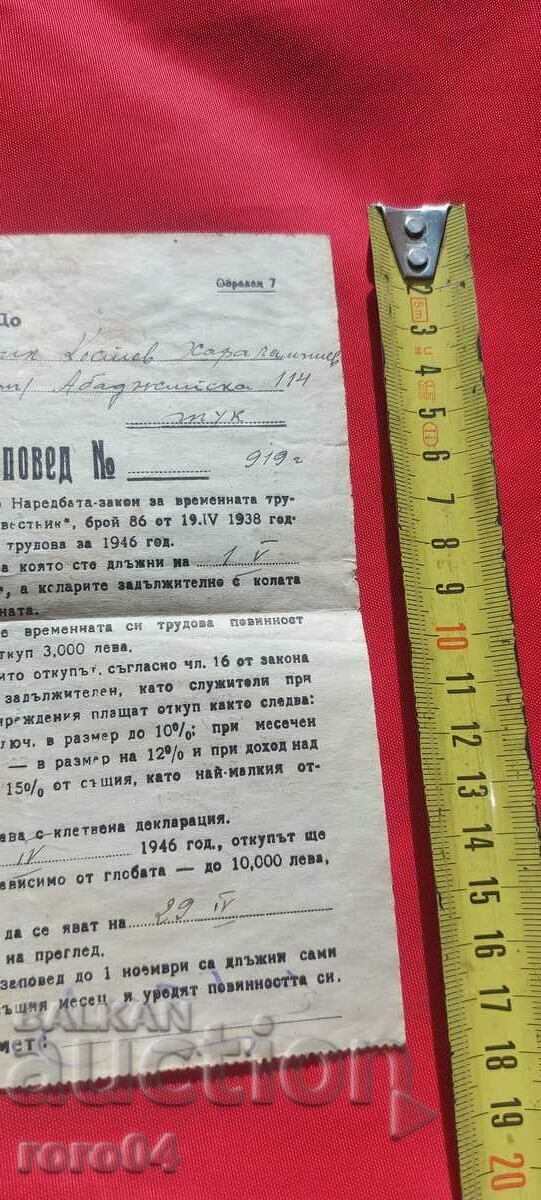 Образец 7
До
Костев Харалампиев
Абаджийска 114
тук
ПОВЕД № 919 г
Наредбата-закон за временната тру-
вестник", брой 86 от 19.IV 1938 год-
трудова за 1946 год.
а която сте длъжни на 1 V
, а коларите задължително с колата
ната.
е временната си трудова повинност
ткуп 3,000 лева.
ито откупът, съгласно чл. 16 от закона
задължителен, като служители при
чреждения плащат откуп както следва:
люч. в размер до 10%; при месечен
— в размер на 12% и при доход над
15% от същия, като най-малкия от-
ава с клетвена декларация.
IV 1946 год., откупът ще
ависимо от глобата — до 10,000 лева,
да се яват на 29 IV
на преглед.
заповед до 1 ноември са длъжни сами
същия месец и уредят повинността си.
мет:
BALKAN
auction
roro04
2
3
4
5
6
7
8
9
10
11
12
13
14
15
16
17
18
19
20
5m
II